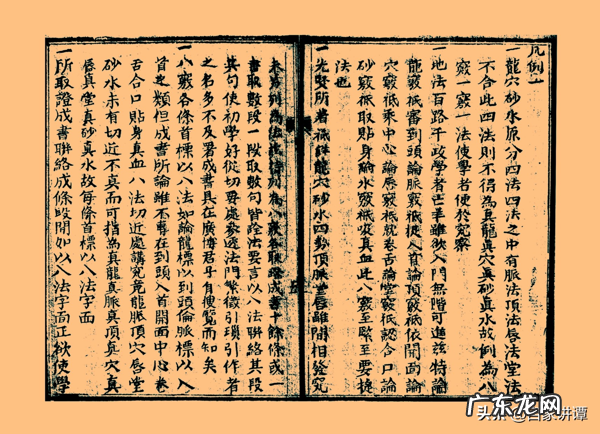 凡例
一龍穴砂水原分四法四法之中有脈法頂法唇法堂法
不合此四法則不得為真龍真穴真砂真水故例為八
竅一竅一法使學者便於究察
一地法百路千政學者雖欲入門無階可進茲特論
龍竅祇審到頭論脈竅祇從入首論頂竅祇依開面論
穴竅祇乘中心論唇竅祇就卷舌論堂竅祇認合口論
砂竅祇取貼身論水竅祇真血此八竅至緊至要捷
法也
一先賢所著祇龍穴砂水四勢頂脈堂唇雖間相發究
未嘗列為聯成書十餘條或一
書取數段一段取數句皆詮法要言以八法聯絡其段
其句使初學好從切要處參透法門繁徵引瑣引作者
之名多不及署成書具在廣博君子自便覽而知矣
一八竅各條首標以八法如論龍標以到頭論脈標以入
首之類但成書所論雖不專在到頭入首開面中心卷
舌合口貼身真血八法切近處講究竟龍脈頂穴唇堂
砂水未有切近不真而可指為真龍真脈真頂真穴真
唇真堂真砂真水故每條首標以八法字面
一所取證成書聯絡成條段開如以八法字面正欲使學
头条 @百家讲谭
广东龙网